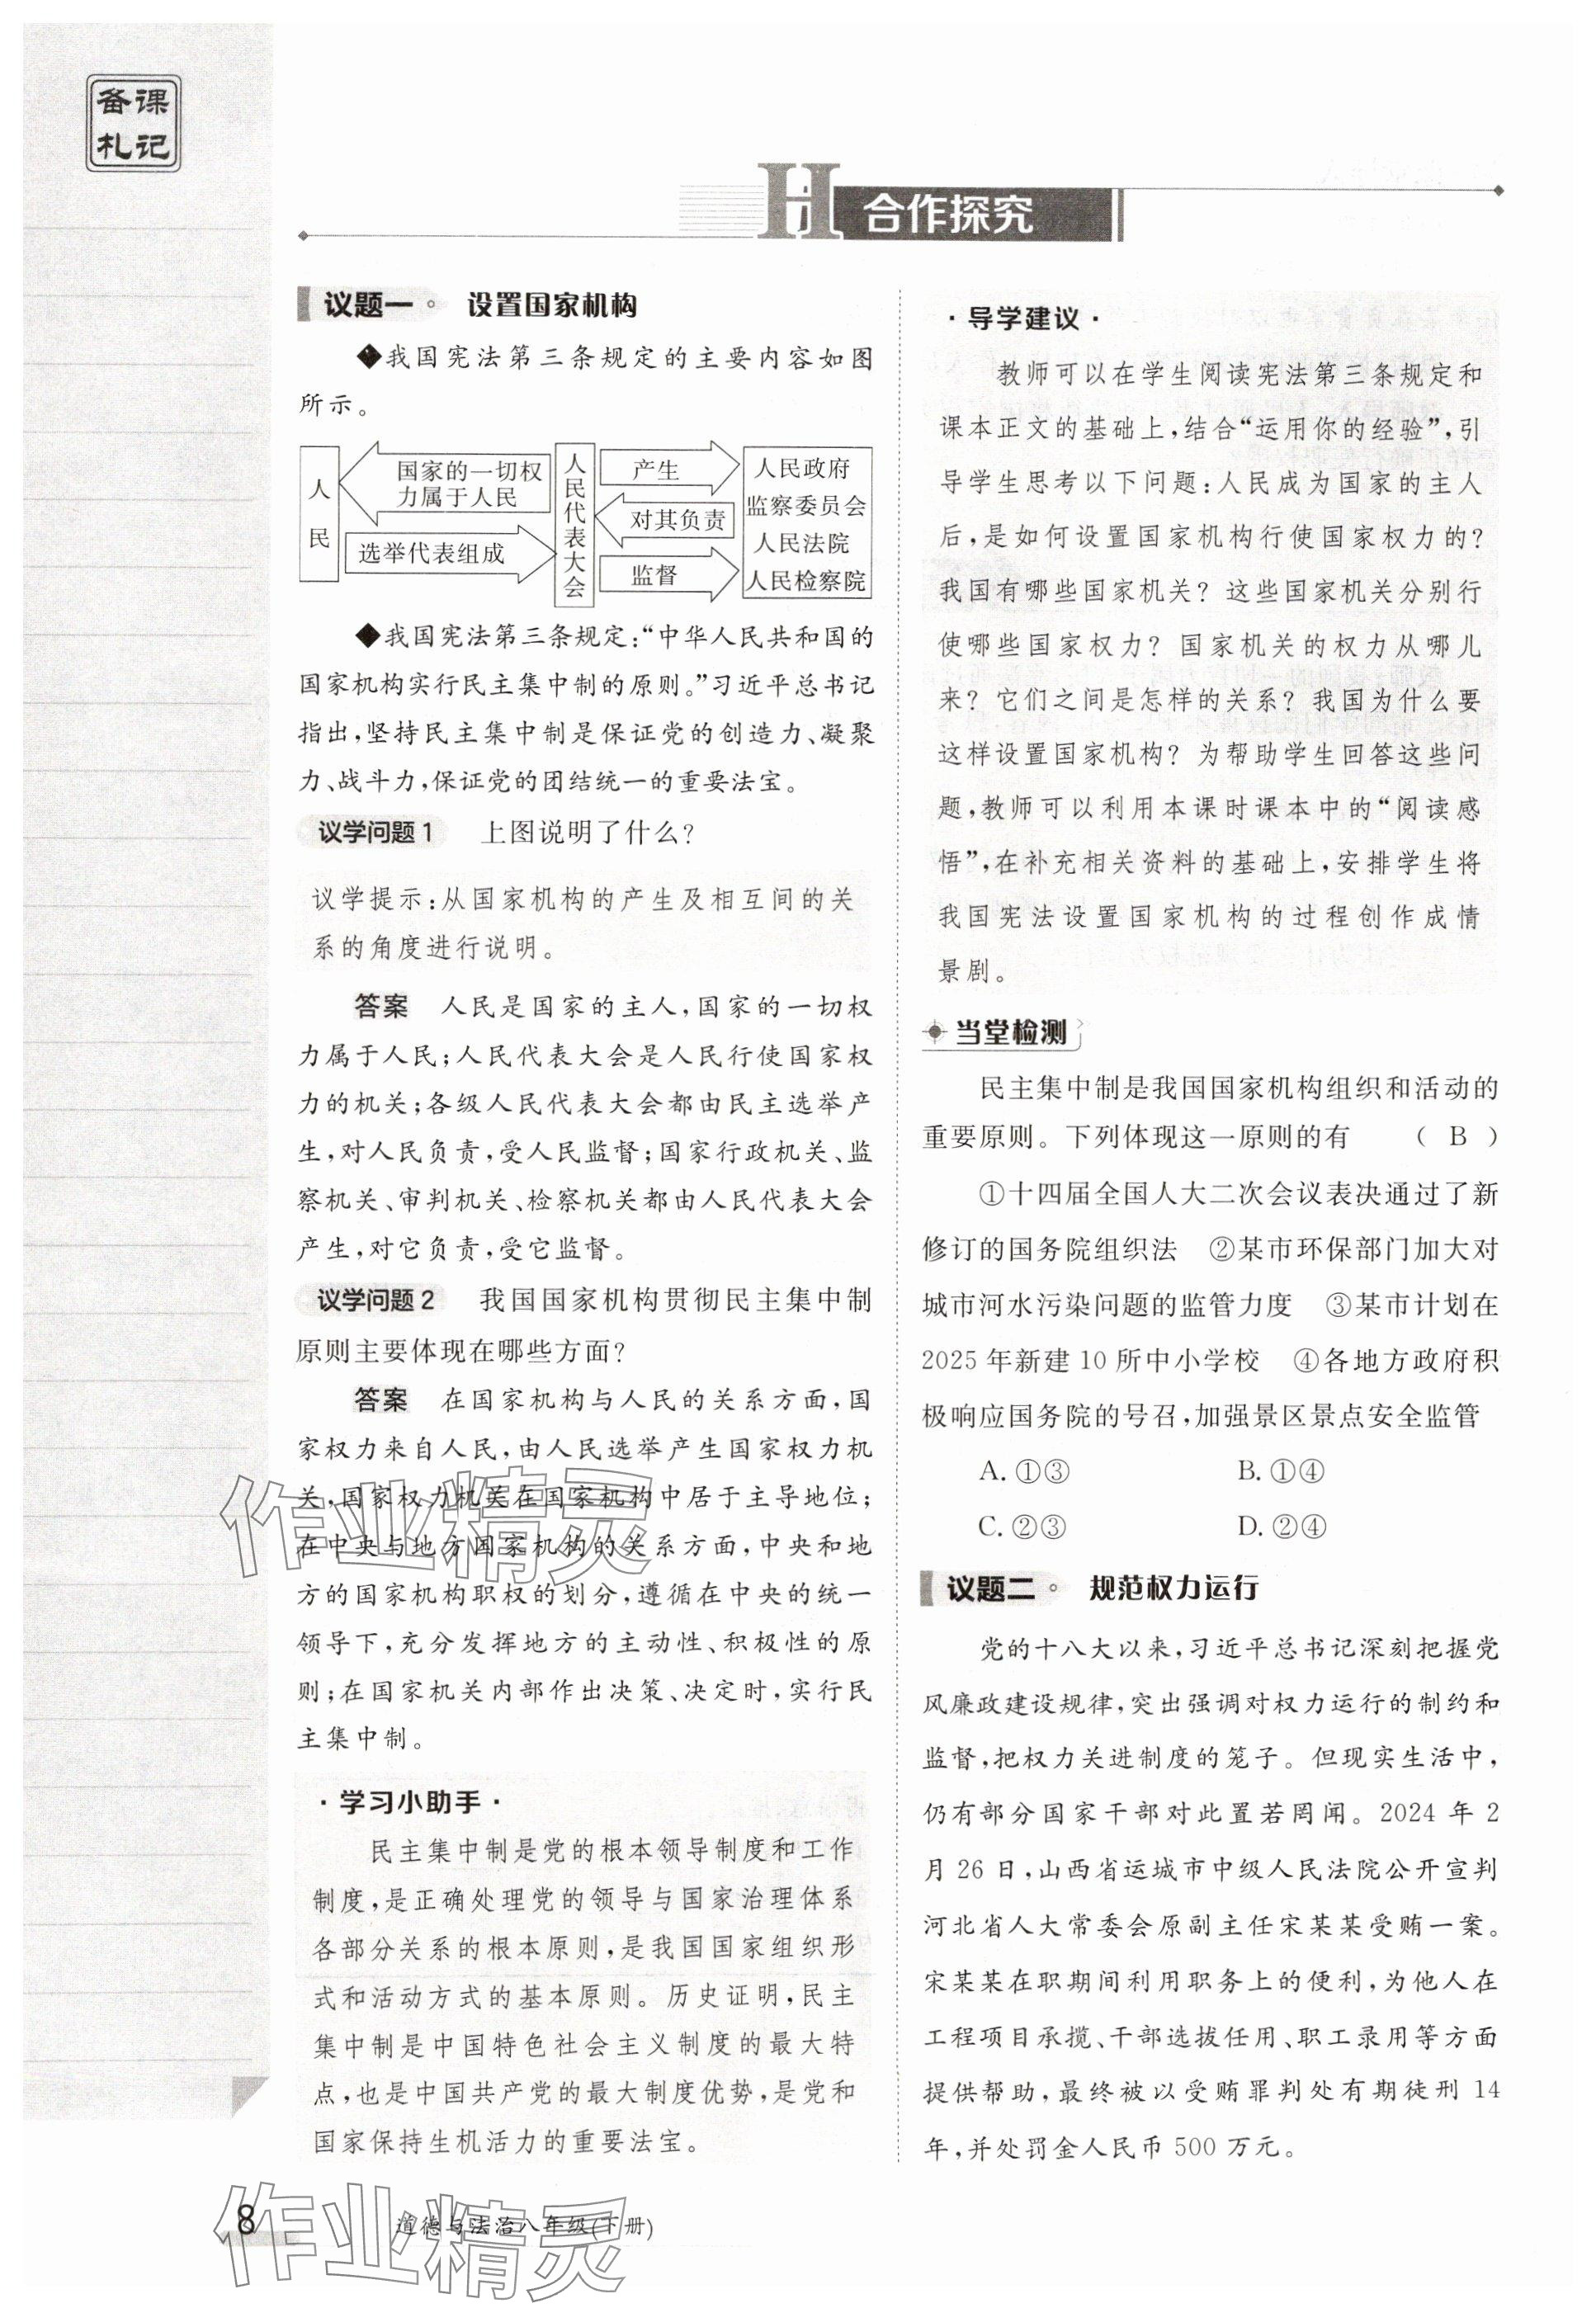 备课
札记
H 合作探究
议题一 设置国家机构
◆我国宪法第三条规定的主要内容如图
所示。
人民
国家的一切权
力属于人民
选举代表组成
人民代表大会
产生
对其负责
监督
人民政府
监察委员会
人民法院
人民检察院
◆我国宪法第三条规定：“中华人民共和国的
国家机构实行民主集中制的原则。”习近平总书记
指出，坚持民主集中制是保证党的创造力、凝聚
力、战斗力，保证党的团结统一的重要法宝。
议学问题1 上图说明了什么？
议学提示：从国家机构的产生及相互间的关
系的角度进行说明。
答案 人民是国家的主人，国家的一切权
力属于人民；人民代表大会是人民行使国家权
力的机关；各级人民代表大会都由民主选举产
生，对人民负责，受人民监督；国家行政机关、监
察机关、审判机关、检察机关都由人民代表大会
产生，对它负责，受它监督。
议学问题2 我国国家机构贯彻民主集中制
原则主要体现在哪些方面？
答案 在国家机构与人民的关系方面，国
家权力来自人民，由人民选举产生国家权力机
关，国家权力机关在国家机构中居于主导地位；
在中央与地方国家机构的关系方面，中央和地
方的国家机构职权的划分，遵循在中央的统一
领导下，充分发挥地方的主动性、积极性的原
则；在国家机关内部作出决策、决定时，实行民
主集中制。
·学习小助手·
民主集中制是党的根本领导制度和工作
制度，是正确处理党的领导与国家治理体系
各部分关系的根本原则，是我国国家组织形
式和活动方式的基本原则。历史证明，民主
集中制是中国特色社会主义制度的最大特
点，也是中国共产党的最大制度优势，是党和
国家保持生机活力的重要法宝。
·导学建议·
教师可以在学生阅读宪法第三条规定和
课本正文的基础上，结合“运用你的经验”，引
导学生思考以下问题：人民成为国家的主人
后，是如何设置国家机构行使国家权力的？
我国有哪些国家机关？这些国家机关分别行
使哪些国家权力？国家机关的权力从哪儿
来？它们之间是怎样的关系？我国为什么要
这样设置国家机构？为帮助学生回答这些问
题，教师可以利用本课时课本中的“阅读感
悟”，在补充相关资料的基础上，安排学生将
我国宪法设置国家机构的过程创作成情
景剧。
当堂检测
民主集中制是我国国家机构组织和活动的
重要原则。下列体现这一原则的有 （ B ）
①十四届全国人大二次会议表决通过了新
修订的国务院组织法 ②某市环保部门加大对
城市河水污染问题的监管力度 ③某市计划在
2025年新建10所中小学校 ④各地方政府积
极响应国务院的号召，加强景区景点安全监管
A.①③ B.①④
C.②③ D.②④
议题二 规范权力运行
党的十八大以来，习近平总书记深刻把握党
风廉政建设规律，突出强调对权力运行的制约和
监督，把权力关进制度的笼子。但现实生活中，
仍有部分国家干部对此置若罔闻。2024年2
月26日，山西省运城市中级人民法院公开宣判
河北省人大常委会原副主任宋某某受贿一案。
宋某某在职期间利用职务上的便利，为他人在
工程项目承揽、干部选拔任用、职工录用等方面
提供帮助，最终被以受贿罪判处有期徒刑14
年，并处罚金人民币500万元。
作业精灵
8 道德与法治八年级(下册)
作业精灵